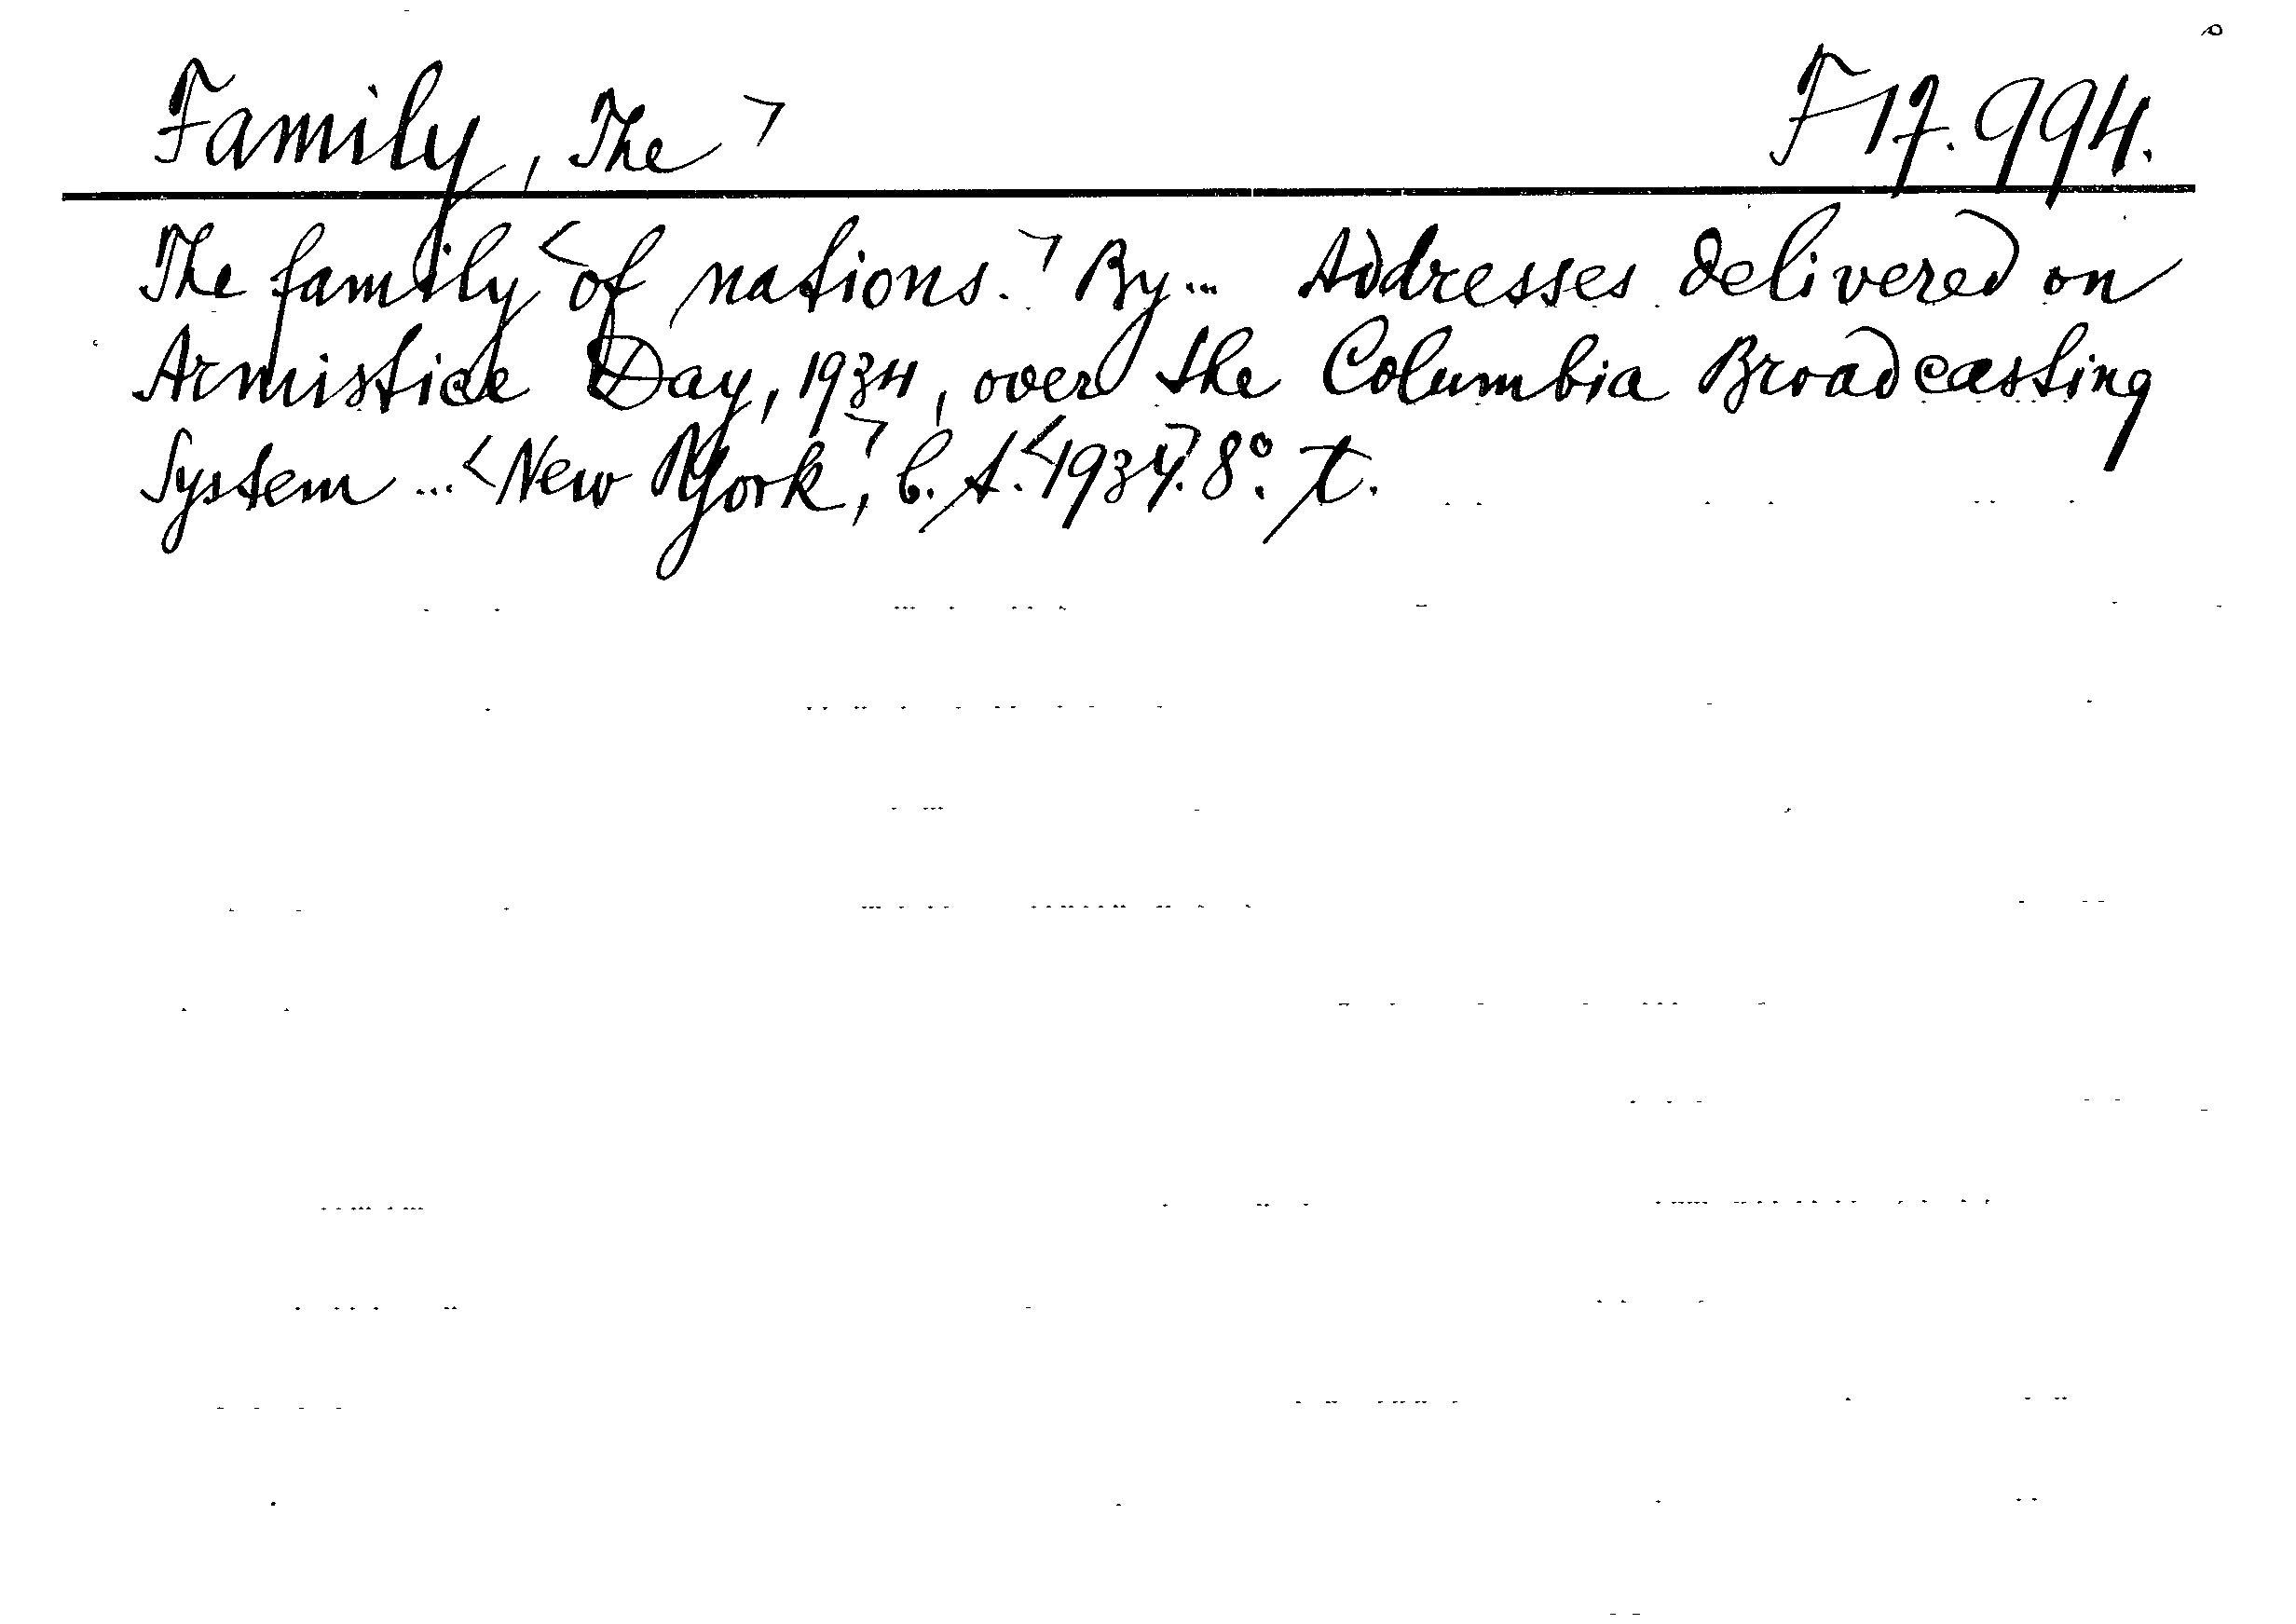 Family, The > F 17.994.
The family <of nations.> By... Addresses delivered on
Armistice Day, 1934, over the Columbia Broadcasting
System ... <New York>, b. A. <1934>. 8°. t.